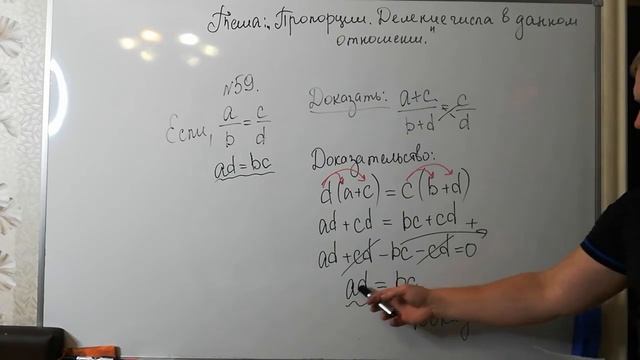 Тема: „Пропорции. Деление числа в данном
отношении."
№59.
Если, a/b = c/d
ad = bc
Доказать: a+c/b+d = c/d
Доказательство:
d(a+c) = c(b+d)
ad + cd = bc + cd
ad + cd - bc - cd = 0
ad = bc